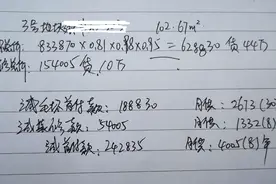 3号地块 102.67m²
833870×0.81×0.98×0.95=628830 贷44万
154005贷10万
首付款:188830 月供:2673(30)
54005 月供:1332(8)
首付款:242835 月供:4005(8)年